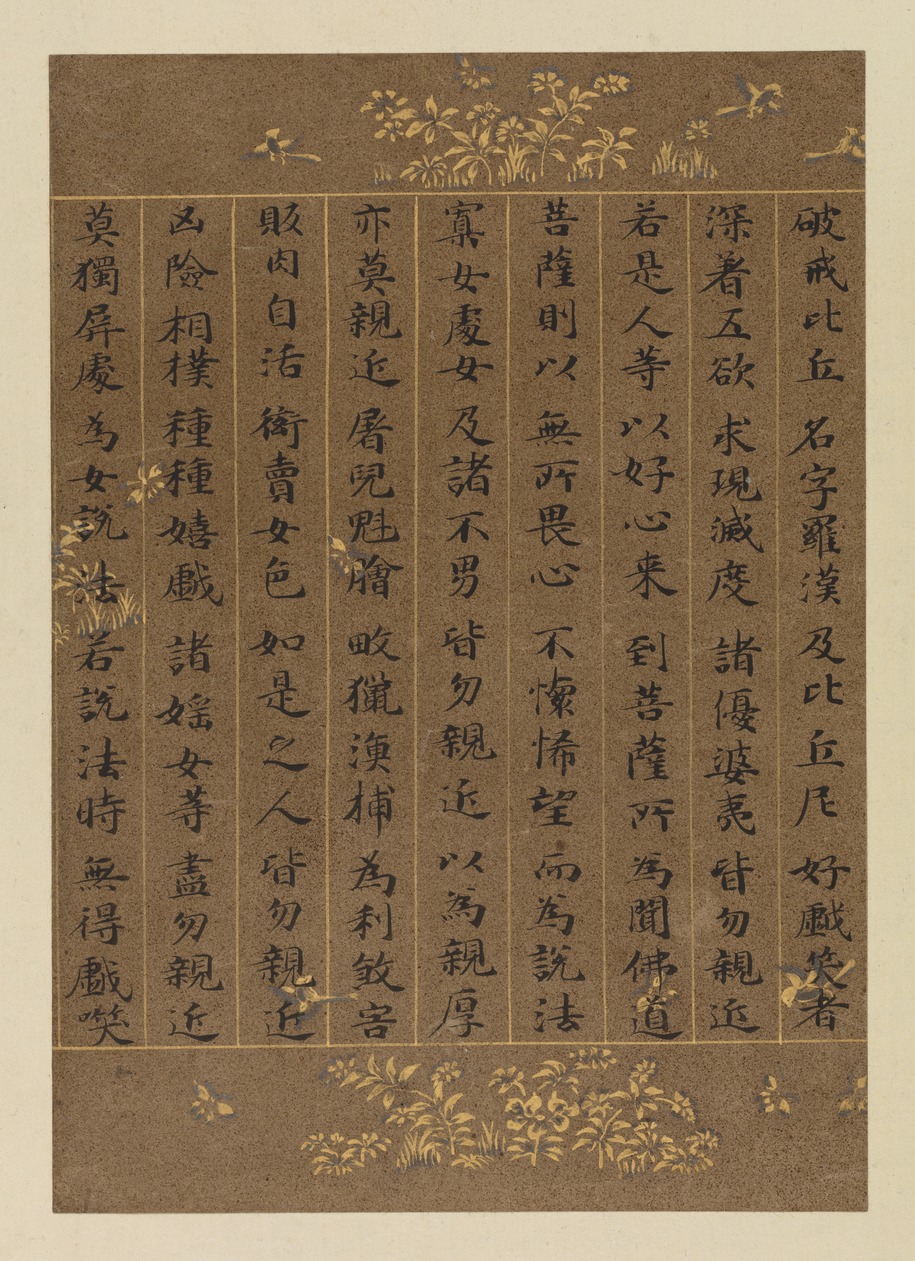 破戒比丘名字羅漢及比丘尼好戲笑者
深著五欲求現滅度諸優婆夷皆勿親近
若是人等以好心来到菩薩所為聞佛道
菩薩則以無所畏心不懷悕望而為說法
寡女處女及諸不男皆勿親近以為親厚
亦莫親近屠兒魁膾畋獵漁捕為利煞害
販肉自活衒賣女色如是之人皆勿親近
凶險相撲種種嬉戲諸婬女等盡勿親近
莫獨屏處為女說法若說法時無得戲咲